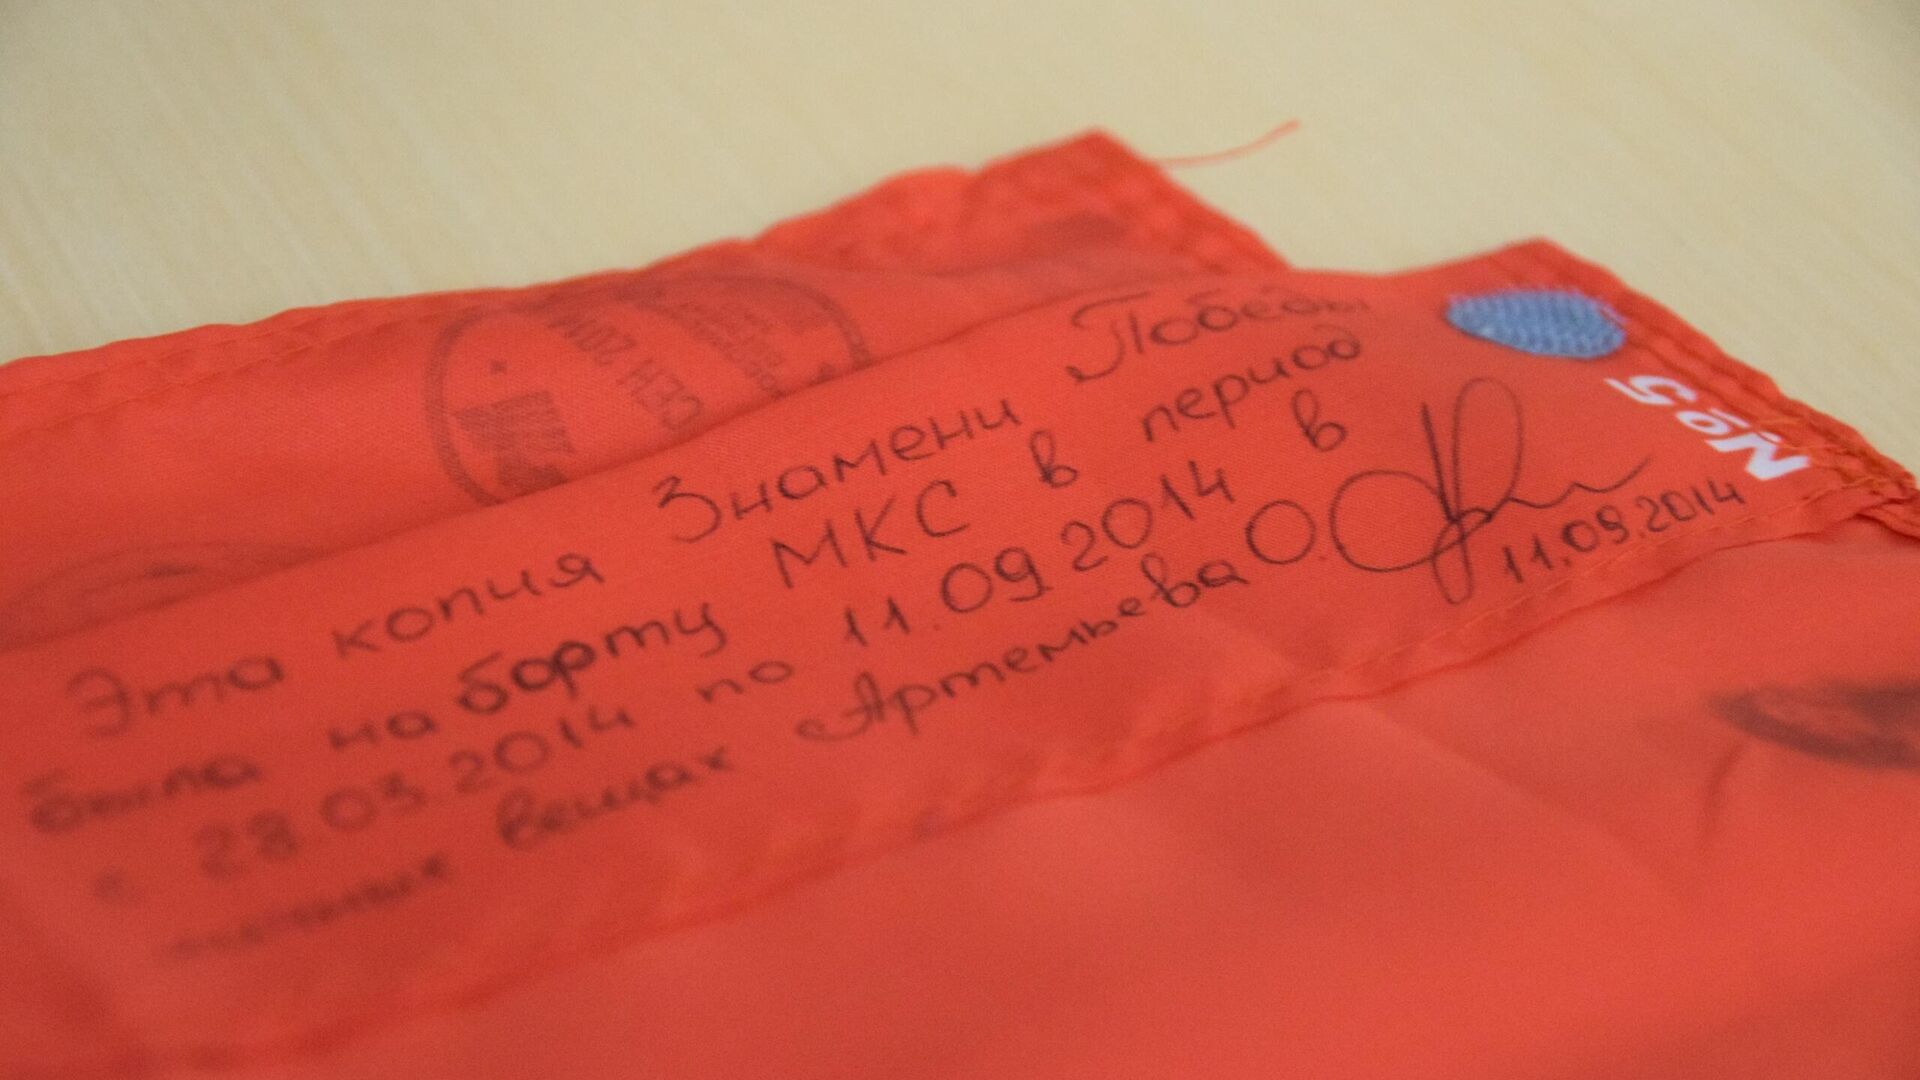 Эта копия Знамени Победы
была на борту МКС в период
с 28.03.2014 по 11.09.2014 в
личных вещах Артемьева О.
11.09.2014
№5
СЕН 201